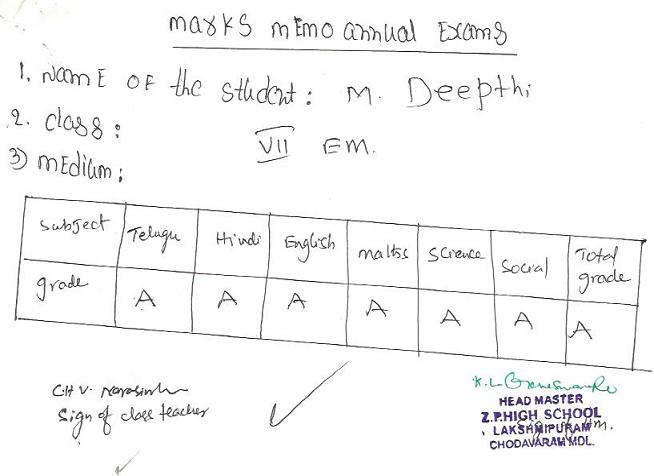 marks mEmo annual Exams
1. Name OF the student: M. Deepthi
2. class: VII EM.
3) mEdium:
subject Telugu Hindi English maths science social Total grade
grade A A A A A A A
C.H.V.
Sign of class teacher
K.L.
HEAD MASTER
Z.P.HIGH SCHOOL
LAKSHMIPURAM
CHODAVARAM MDL.